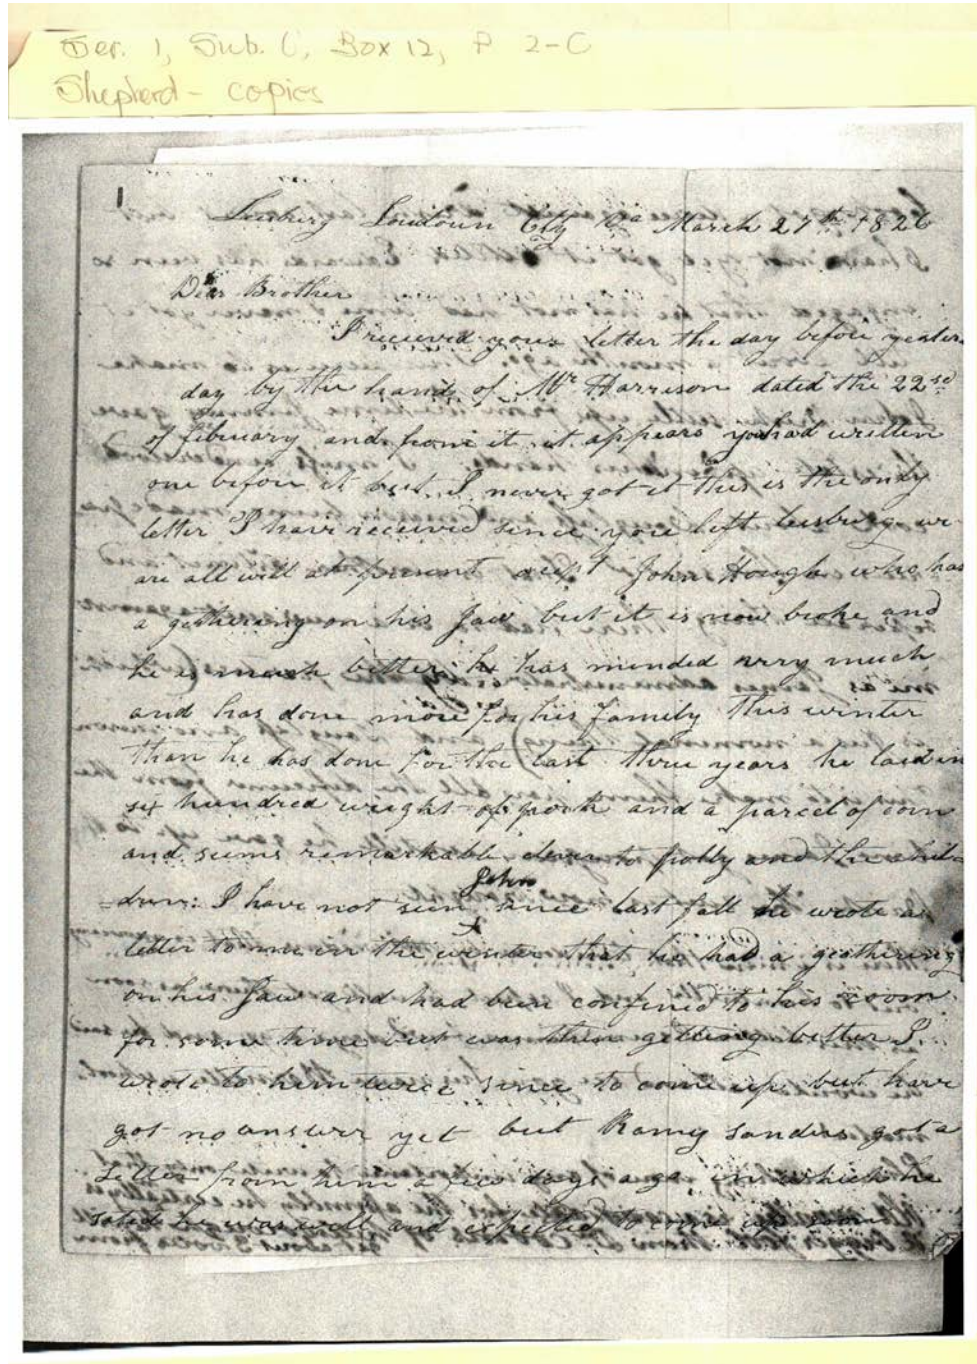 Ser. 1, Sub. C, Box 12, P 2-C
Shepherd - copies
1
Lesburg Loudoun Cty Va March 27th 1826
Dear Brother
I received your letter the day before yester
day by the hands of Mr Harrison dated the 22sd
of febuary and from it it appears you had written
one before it but I never got it this is the only
letter I have received since you left leesburg we
are all well at present exept John Hough who has
a gathering on his Jaw but it is now broke and
he is much better he has minded very much
and has done more for his family this winter
than he has done for the last three years he laid in
six hundred weight of pork and a parcel of corn
and seems remarkable clever to polly and the chil
dren: I have not seen John since last fall he wrote a
letter to me in the winter that he had a geathering
on his Jaw and had been confined to his room
for some time but was then getting better I
wrote to him twice since to come up but have
got no answer yet but Ramy Sanders got a
letter from him a few days ago in which he
stated he was well and expected to come up soon